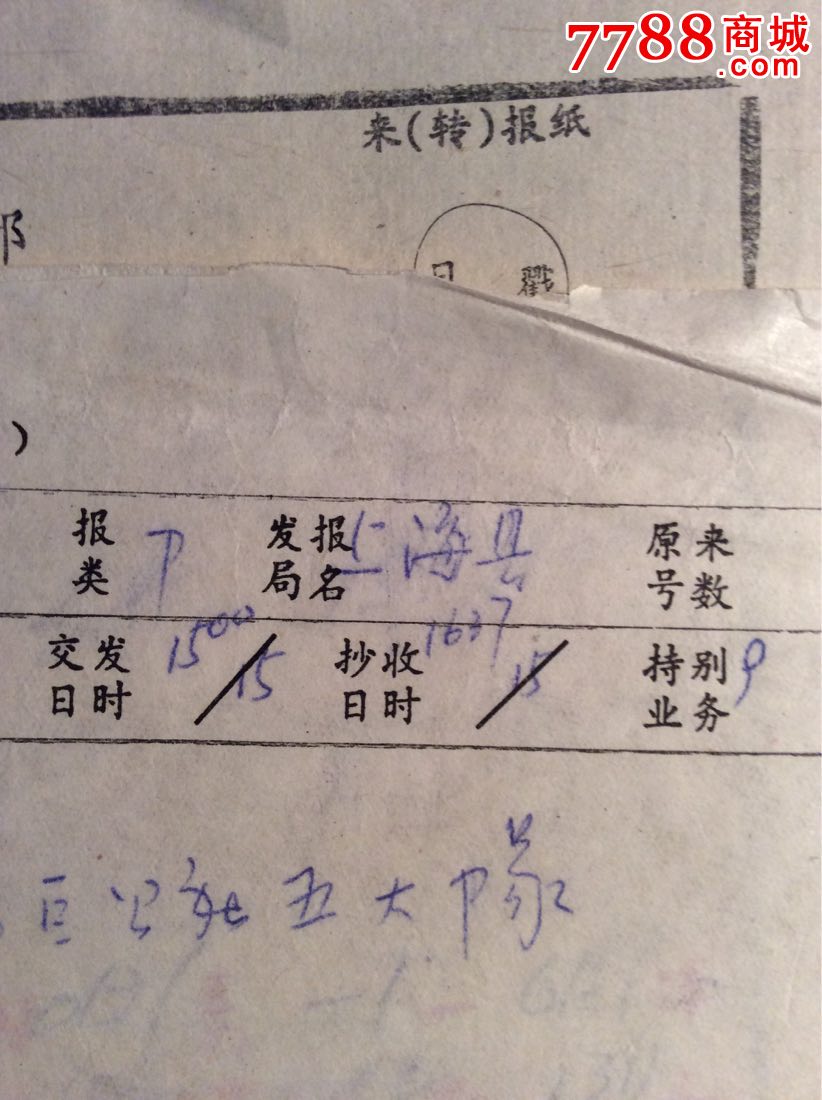 7788商城
.com
来(转)报纸
部
日 戳
)
报类 P 发报局名 上海县 原来号数
交发日时 1500/15 抄收日时 1637/15 特别业务 9
巨公社五大隊